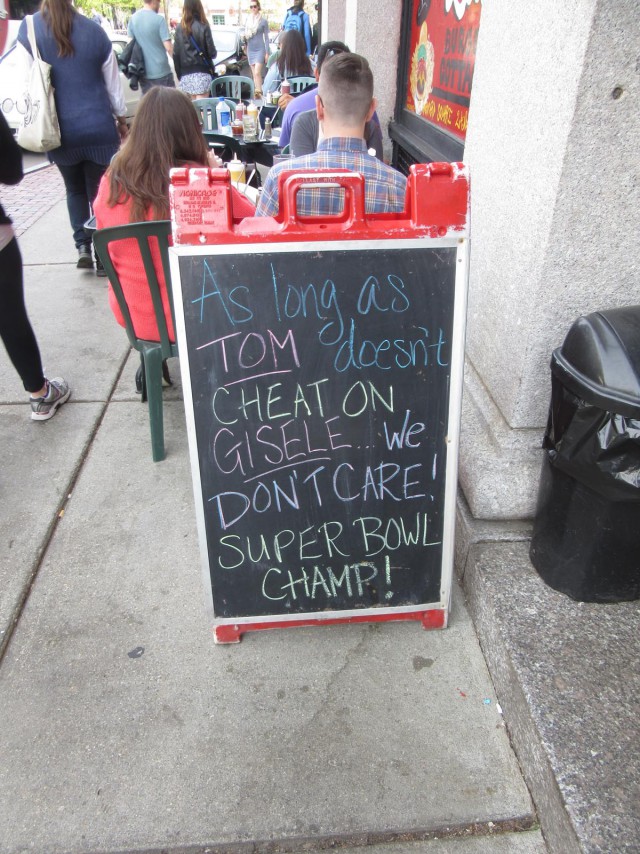 As long as
TOM doesn't
CHEAT ON
GISELE... We
DON'T CARE!
SUPER BOWL
CHAMP!